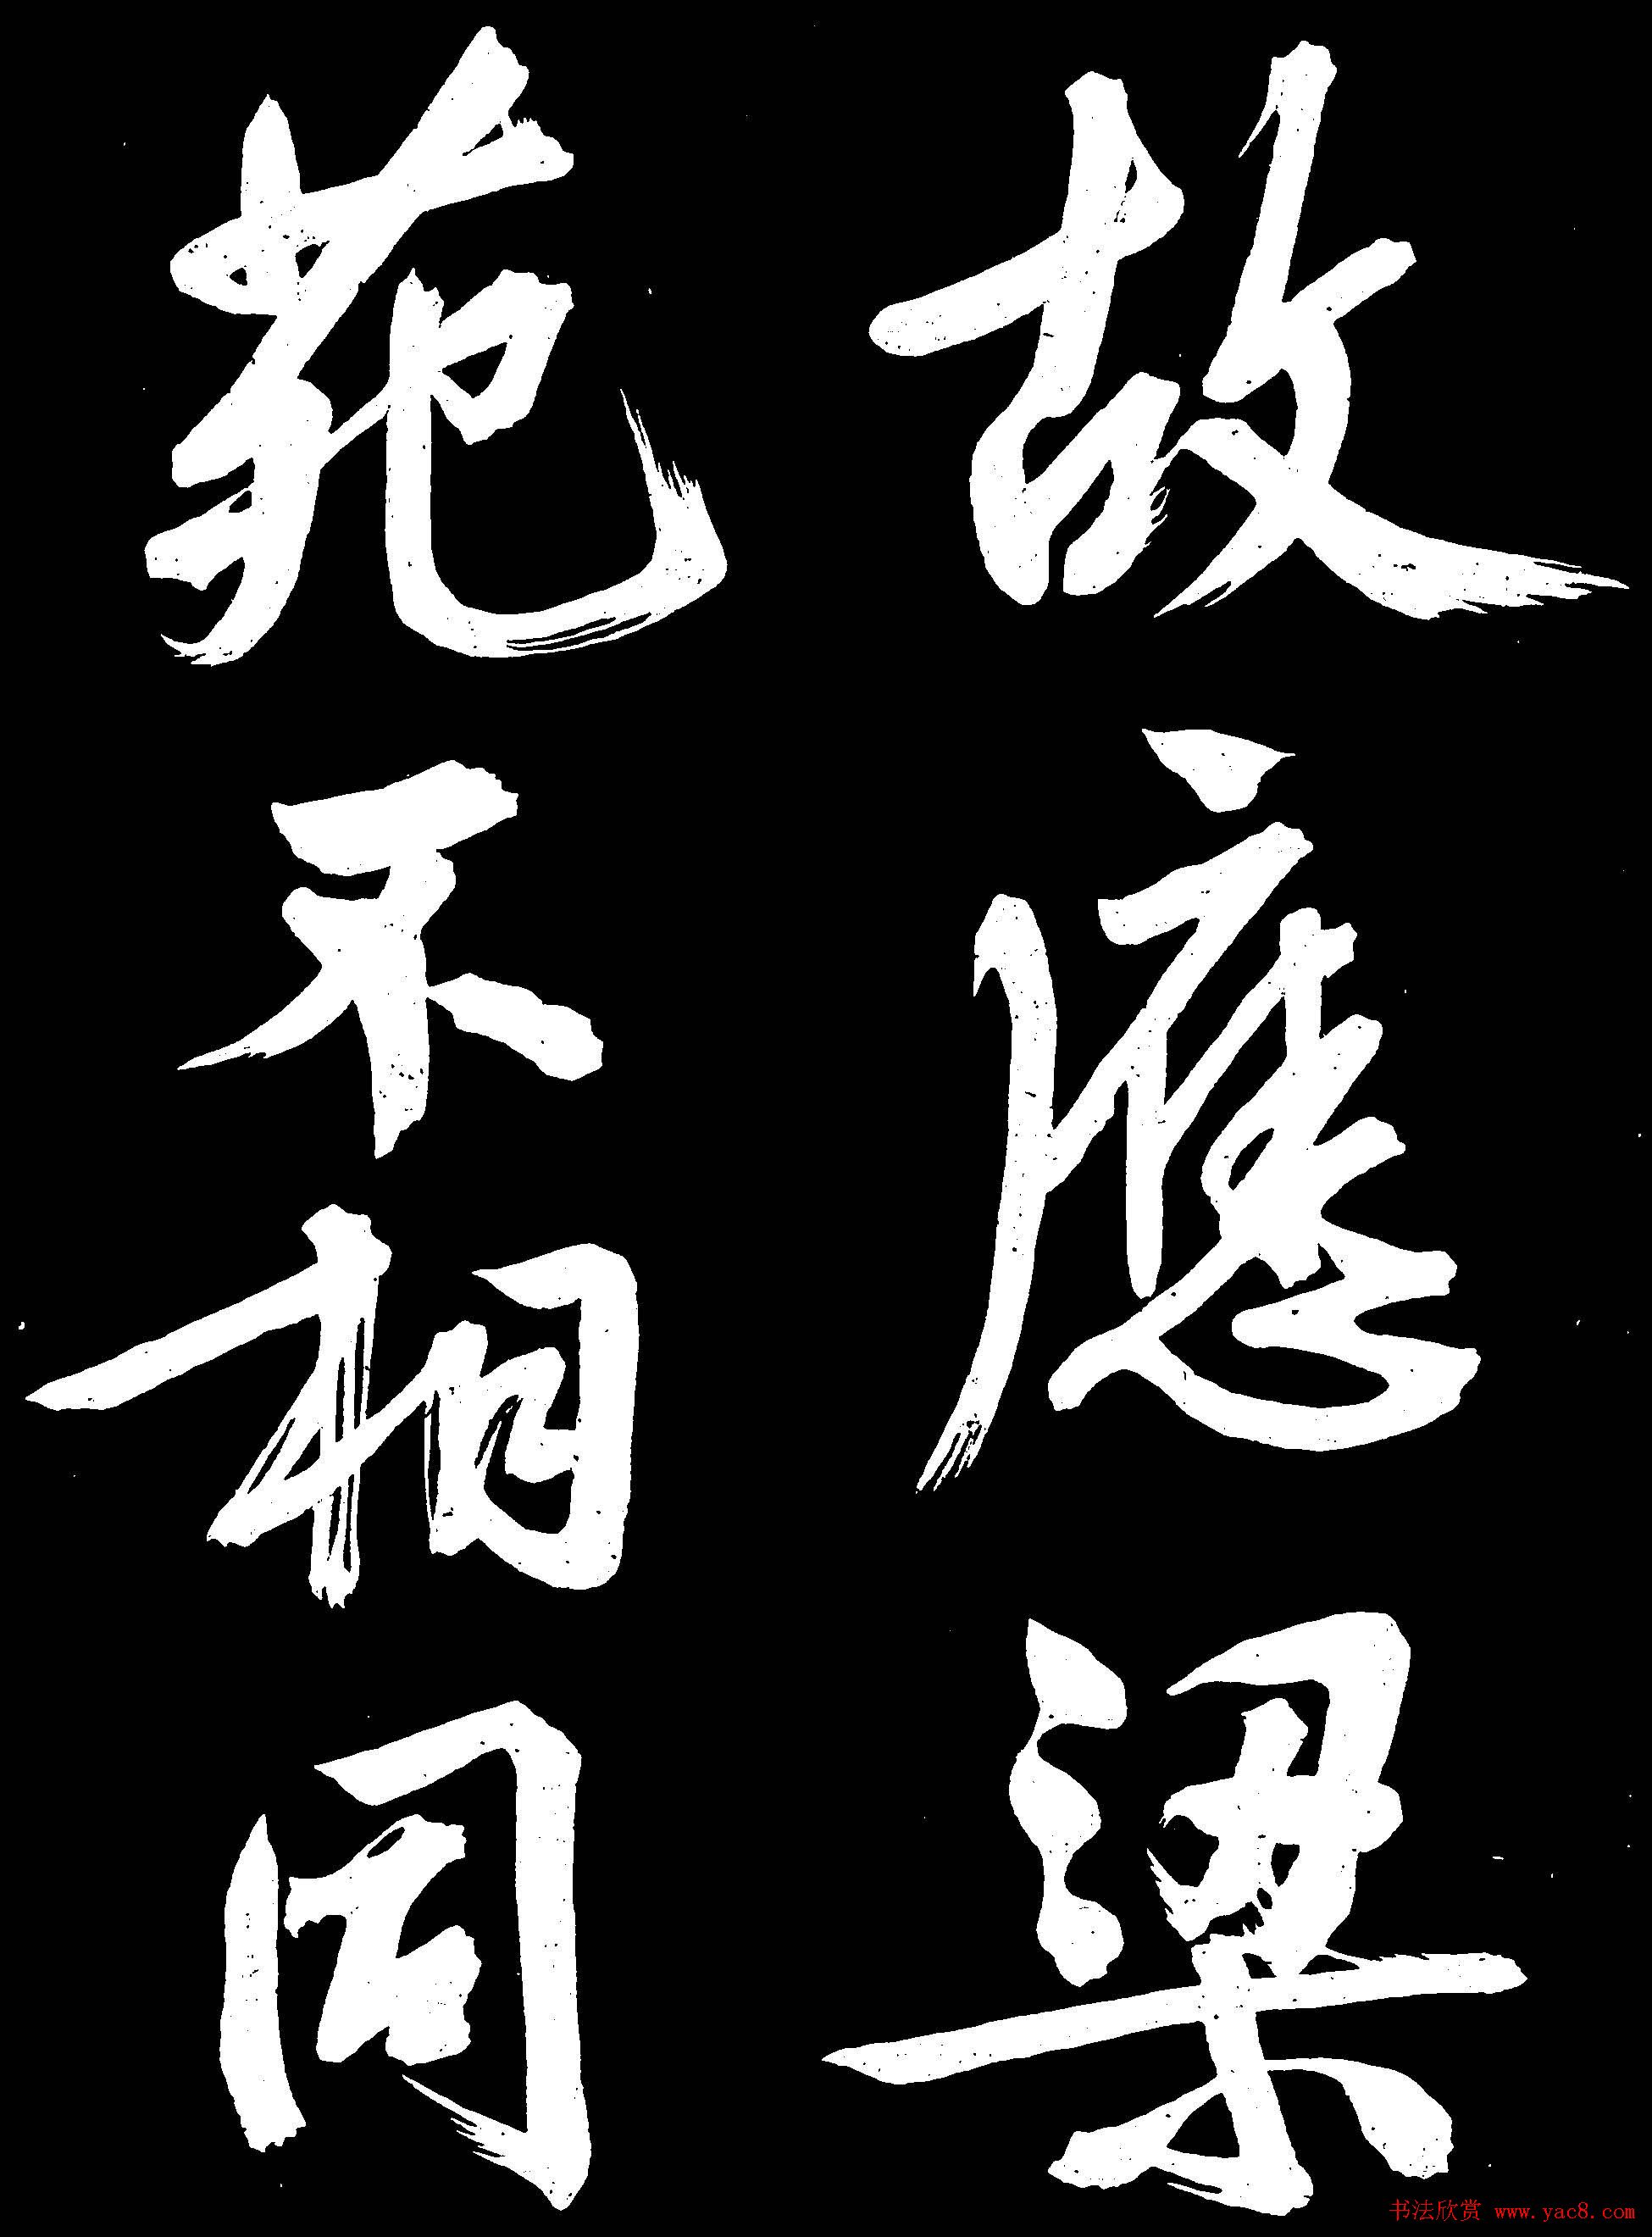 故應梁
苑不相同
书法欣赏 www.yac8.com